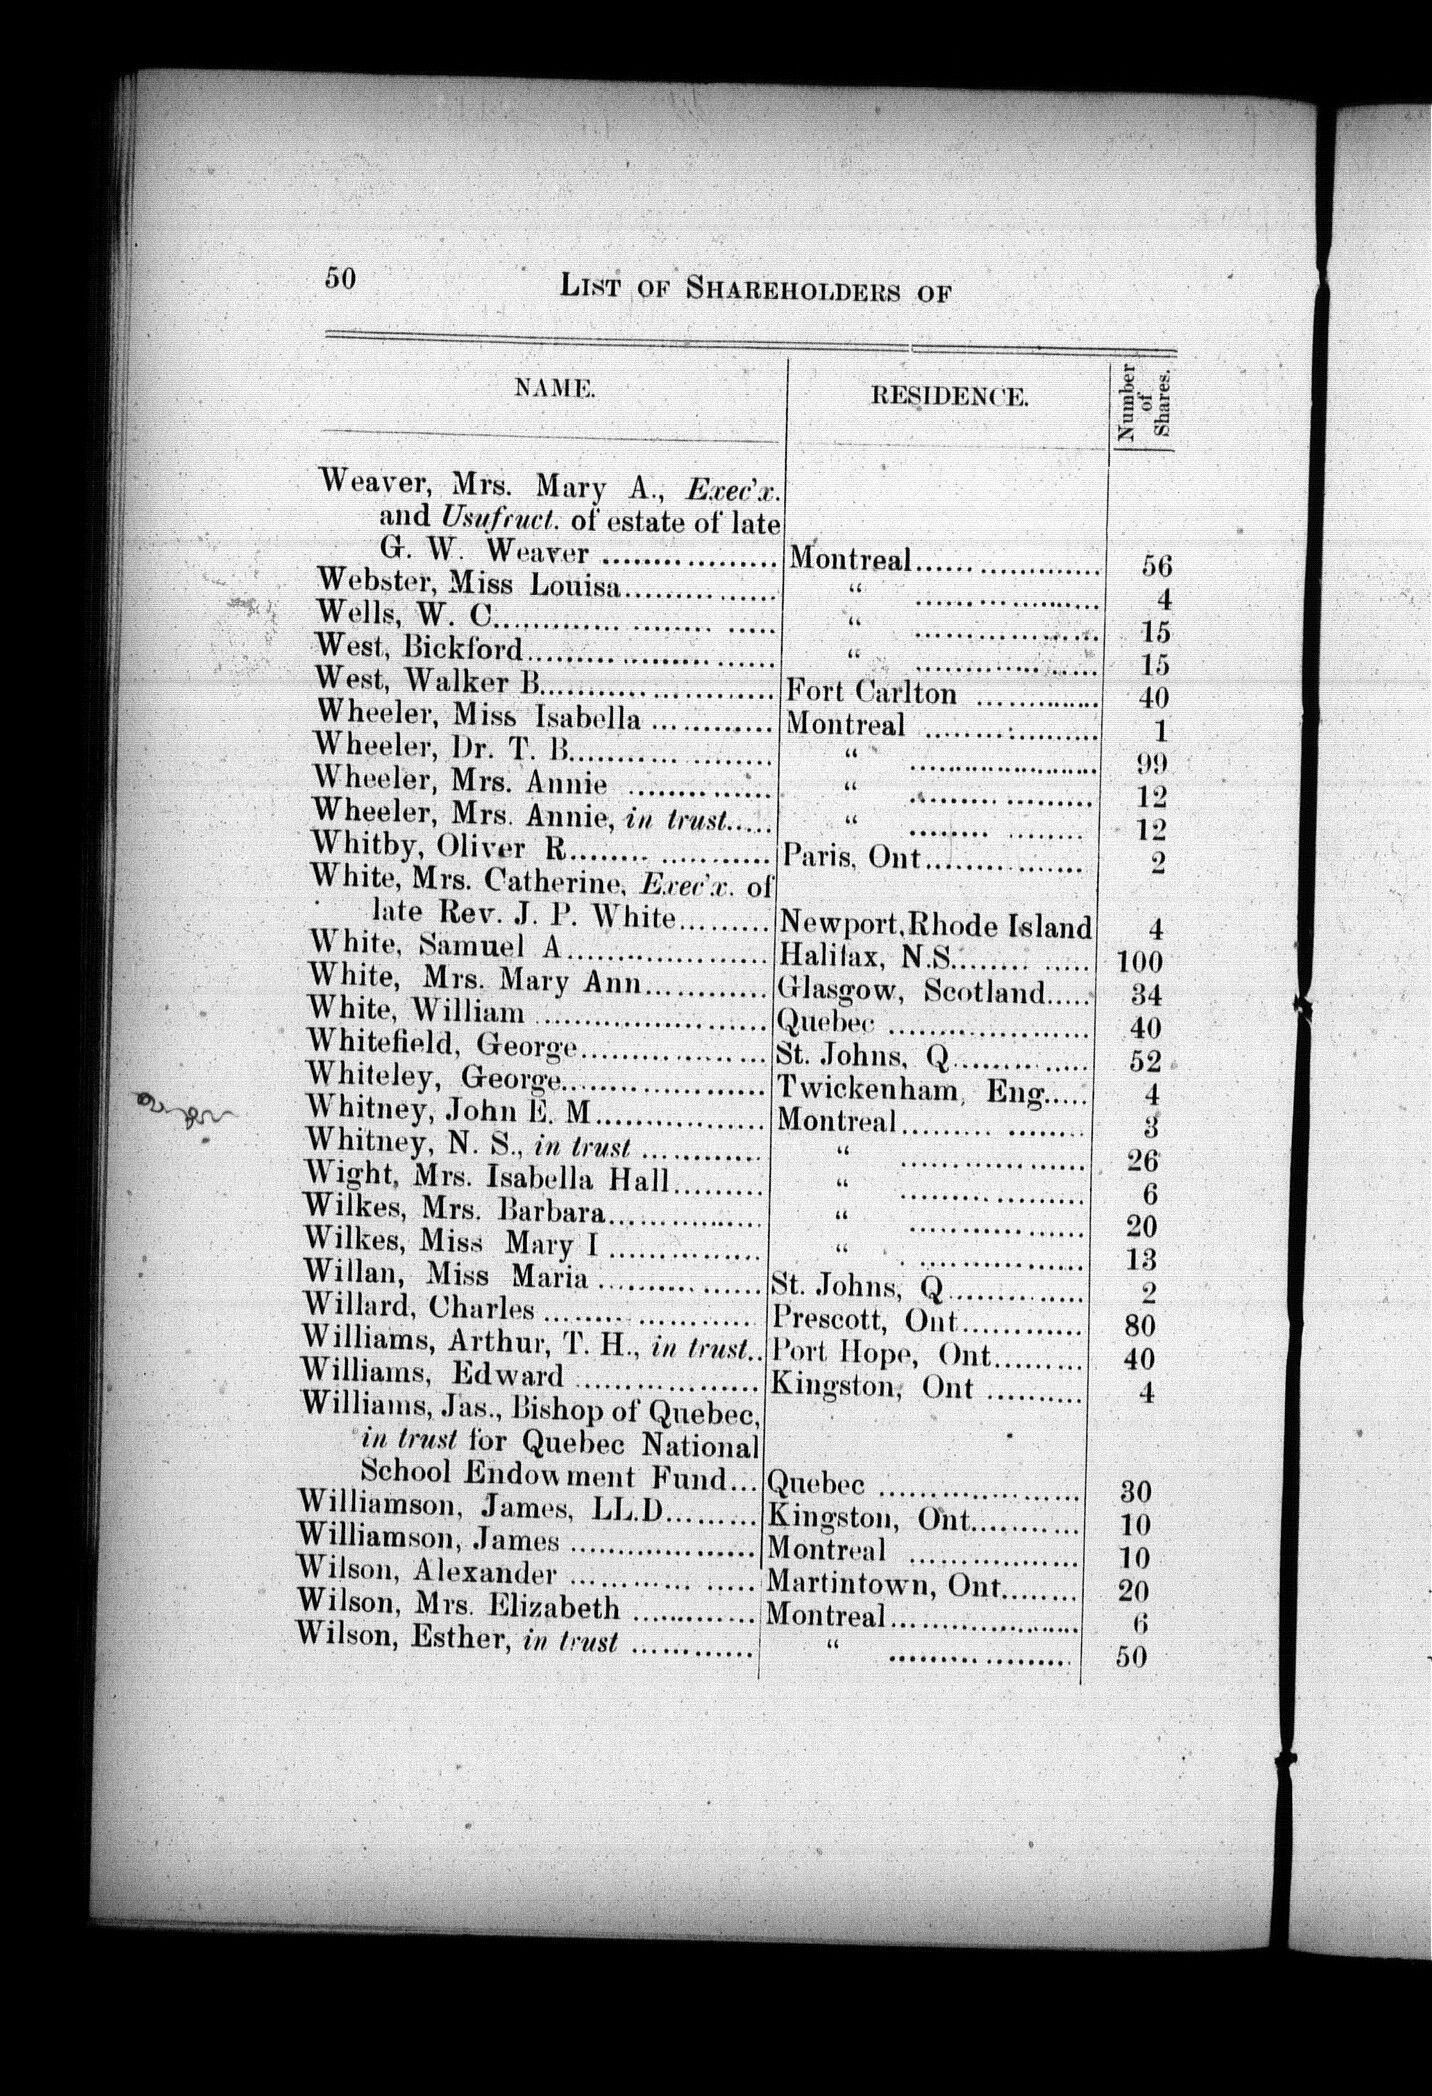 50
LIST OF SHAREHOLDERS OF
NAME. RESIDENCE. Number of Shares.
Weaver, Mrs. Mary A., Exec'x.
and Usufruct. of estate of late
G. W. Weaver ................ Montreal.................. 56
Webster, Miss Louisa............. “ .................. 4
Wells, W. C...................... “ .................. 15
West, Bickford................... “ .................. 15
West, Walker B................... Fort Carlton ............ 40
Wheeler, Miss Isabella ............ Montreal ................ 1
Wheeler, Dr. T. B................. “ .................. 99
Wheeler, Mrs. Annie .............. “ .................. 12
Wheeler, Mrs. Annie, in trust..... “ .................. 12
Whitby, Oliver R.................. Paris, Ont............... 2
White, Mrs. Catherine, Exec'x. of
late Rev. J. P. White......... Newport, Rhode Island 4
White, Samuel A................... Halifax, N.S............. 100
White, Mrs. Mary Ann............ Glasgow, Scotland..... 34
White, William .................... Quebec .................. 40
Whitefield, George................ St. Johns, Q............. 52
Whiteley, George.................. Twickenham, Eng..... 4
Whitney, John E. M................ Montreal................. 3
Whitney, N. S., in trust ............ “ .................. 26
Wight, Mrs. Isabella Hall......... “ .................. 6
Wilkes, Mrs. Barbara.............. “ .................. 20
Wilkes, Miss Mary I .............. “ .................. 13
Willan, Miss Maria ............... St. Johns, Q............. 2
Willard, Charles ................... Prescott, Ont............ 80
Williams, Arthur, T. H., in trust.. Port Hope, Ont......... 40
Williams, Edward ................. Kingston, Ont .......... 4
Williams, Jas., Bishop of Quebec,
in trust for Quebec National
School Endowment Fund... Quebec .................. 30
Williamson, James, LL.D......... Kingston, Ont........... 10
Williamson, James ................. Montreal ................ 10
Wilson, Alexander ................. Martintown, Ont........ 20
Wilson, Mrs. Elizabeth ............ Montreal.................. 6
Wilson, Esther, in trust ............ “ .................. 50